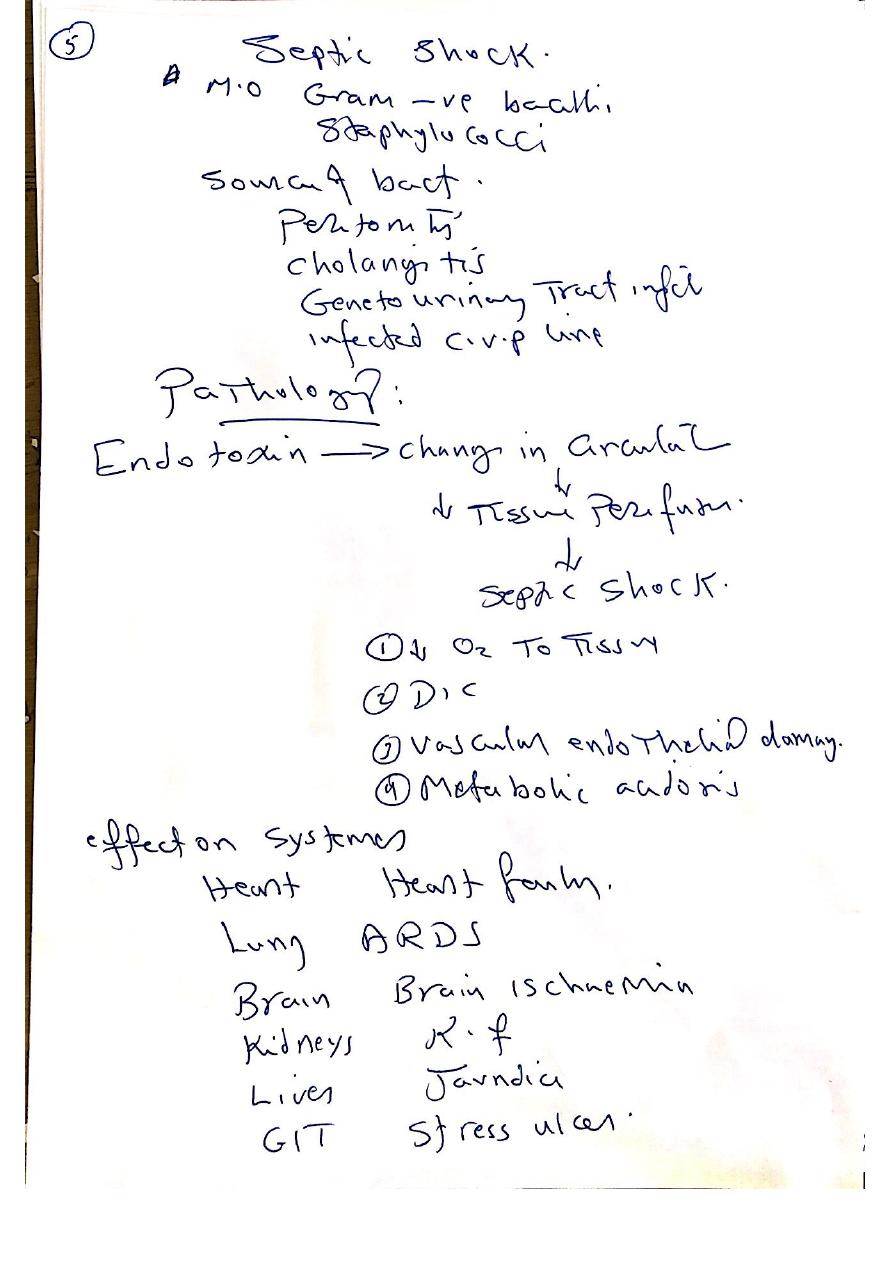 5
Septic Shock.
M.O Gram -ve bacilli,
Staphylococci
Source of bact.
Peritonitis
Cholangitis
Genetourinary Tract infct
infected C.V.P line
Pathology:
Endotoxin → Change in Circulat
↓
↓ Tissue Perfusion.
↓
Septic Shock.
① ↓ O2 To Tissue
② DIC
③ Vascular endothelial damag.
④ Metabolic acidosis
effect on Systemes
Heart Heart
Lung ARDS
Brain Brain ischaemia
Kidneys K.f
Liver Jaundice
GIT Stress ulcer.